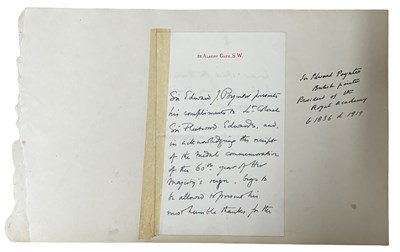 28 Albert Gate, S.W.
Sir Edward J Poynter presents
his compliments to Lt. Colonel
Sir Fleetwood Edwards, and,
in acknowledging the receipt
of the Medal commemorative
of the 60th year of Her
Majesty's reign, begs to
be allowed to present his
most humble thanks for the
Sir Edward Poynter
British painter
President of the
Royal Academy
b 1836 d 1919